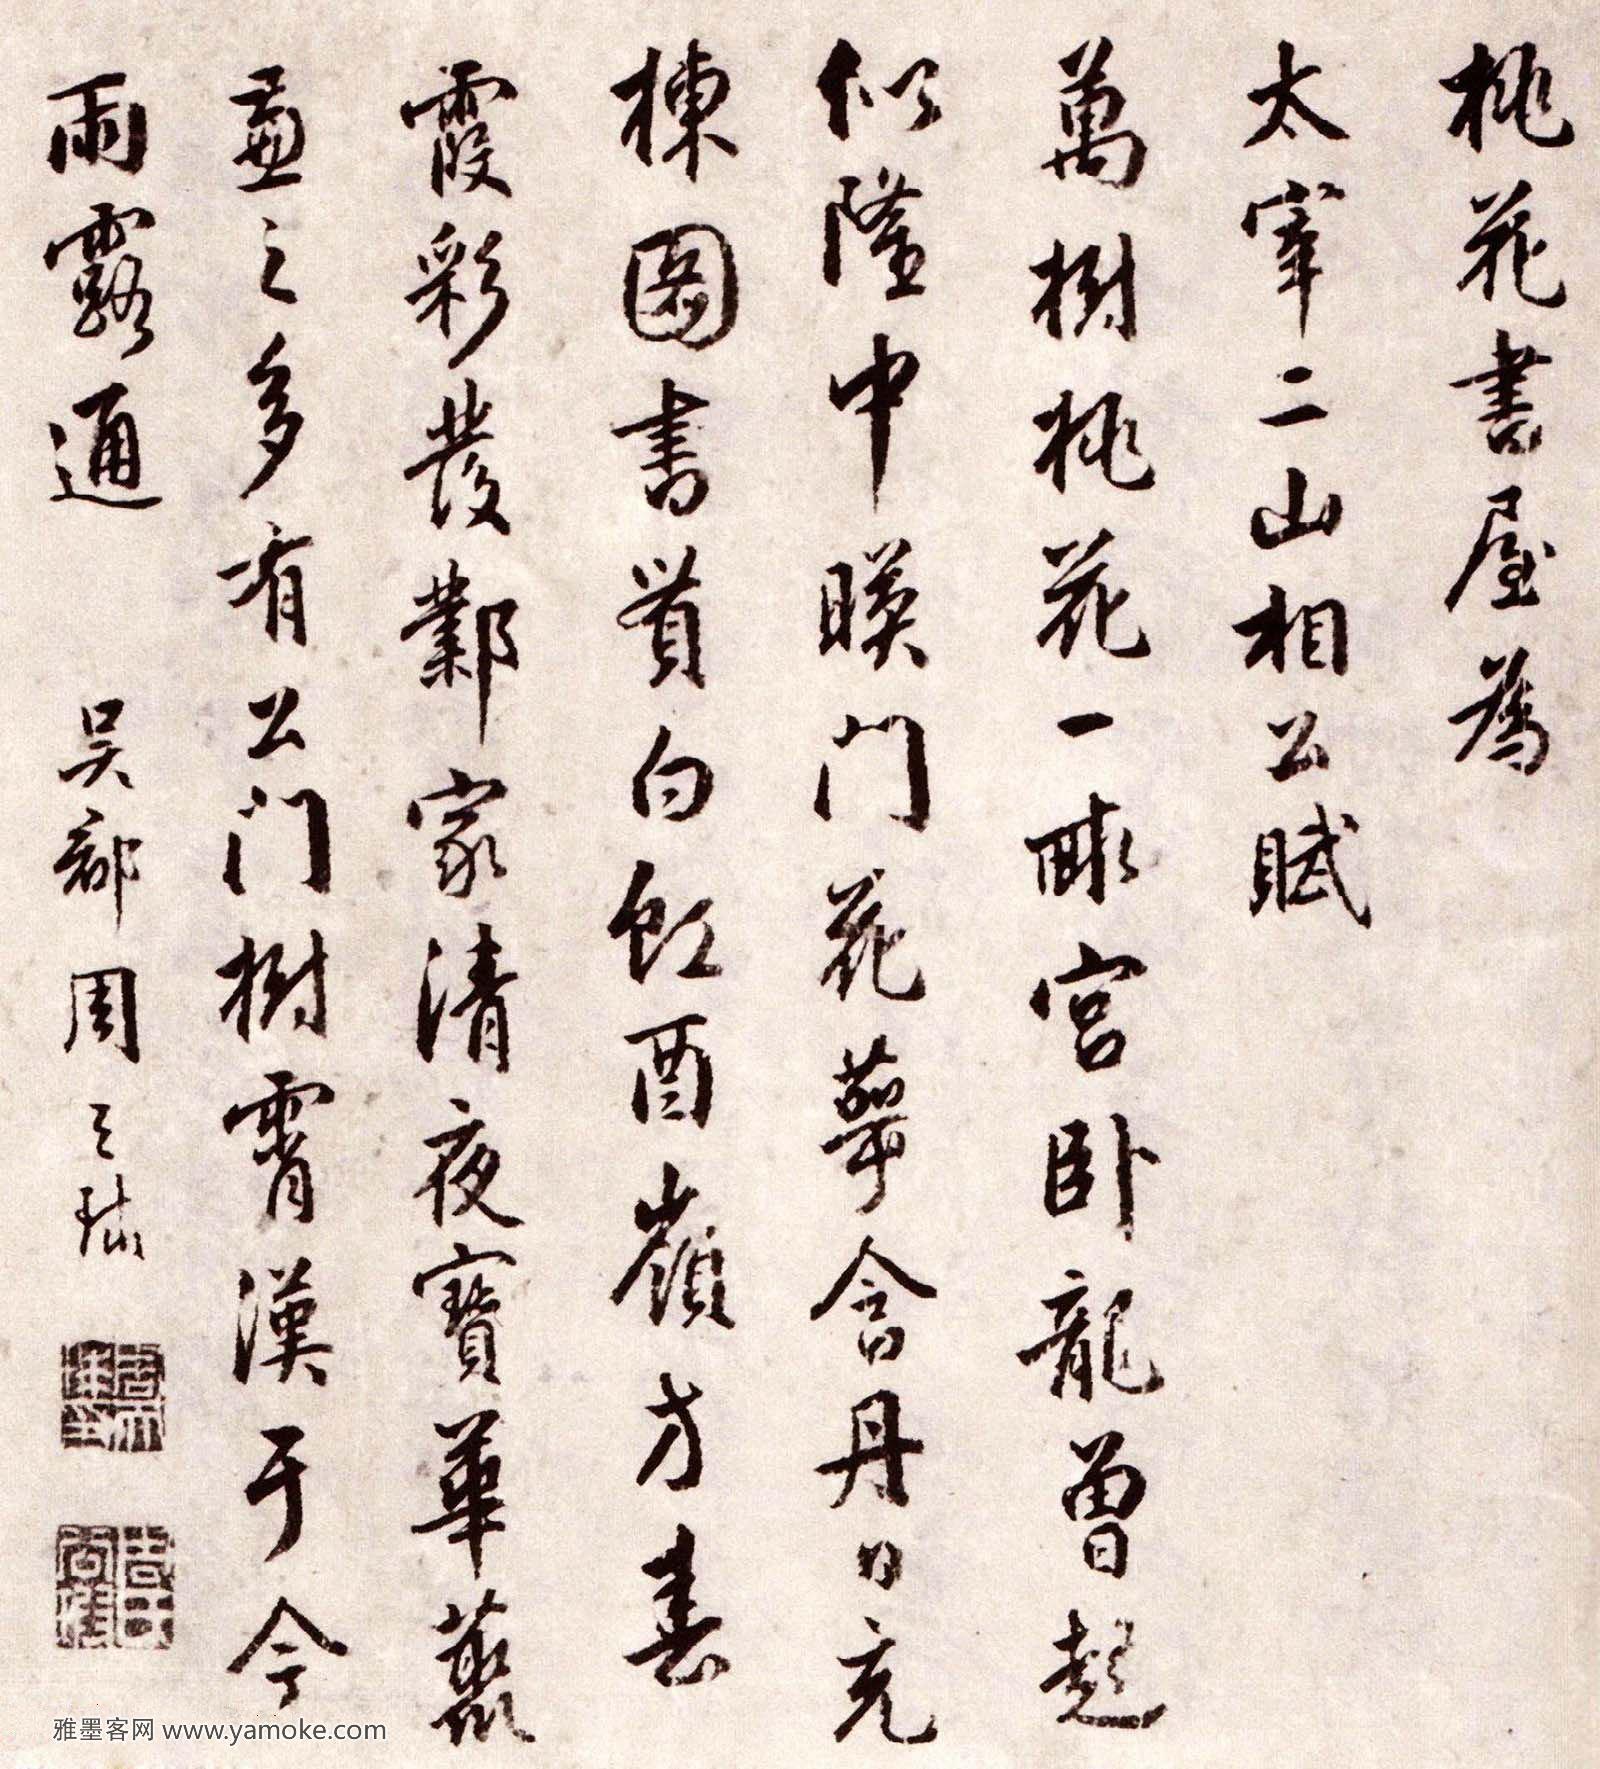 桃花書屋為
太宰二山相公賦
萬樹桃花一畝宮卧龍曾起
似隆中暎門花萼含丹日充
棟圖書貫白虹酉嶺方春
霞彩發鄴家清夜寶華叢
蓋之多有公門樹霄漢于今
雨露通
吳郡周天球
雅墨客网 www.yamoke.com